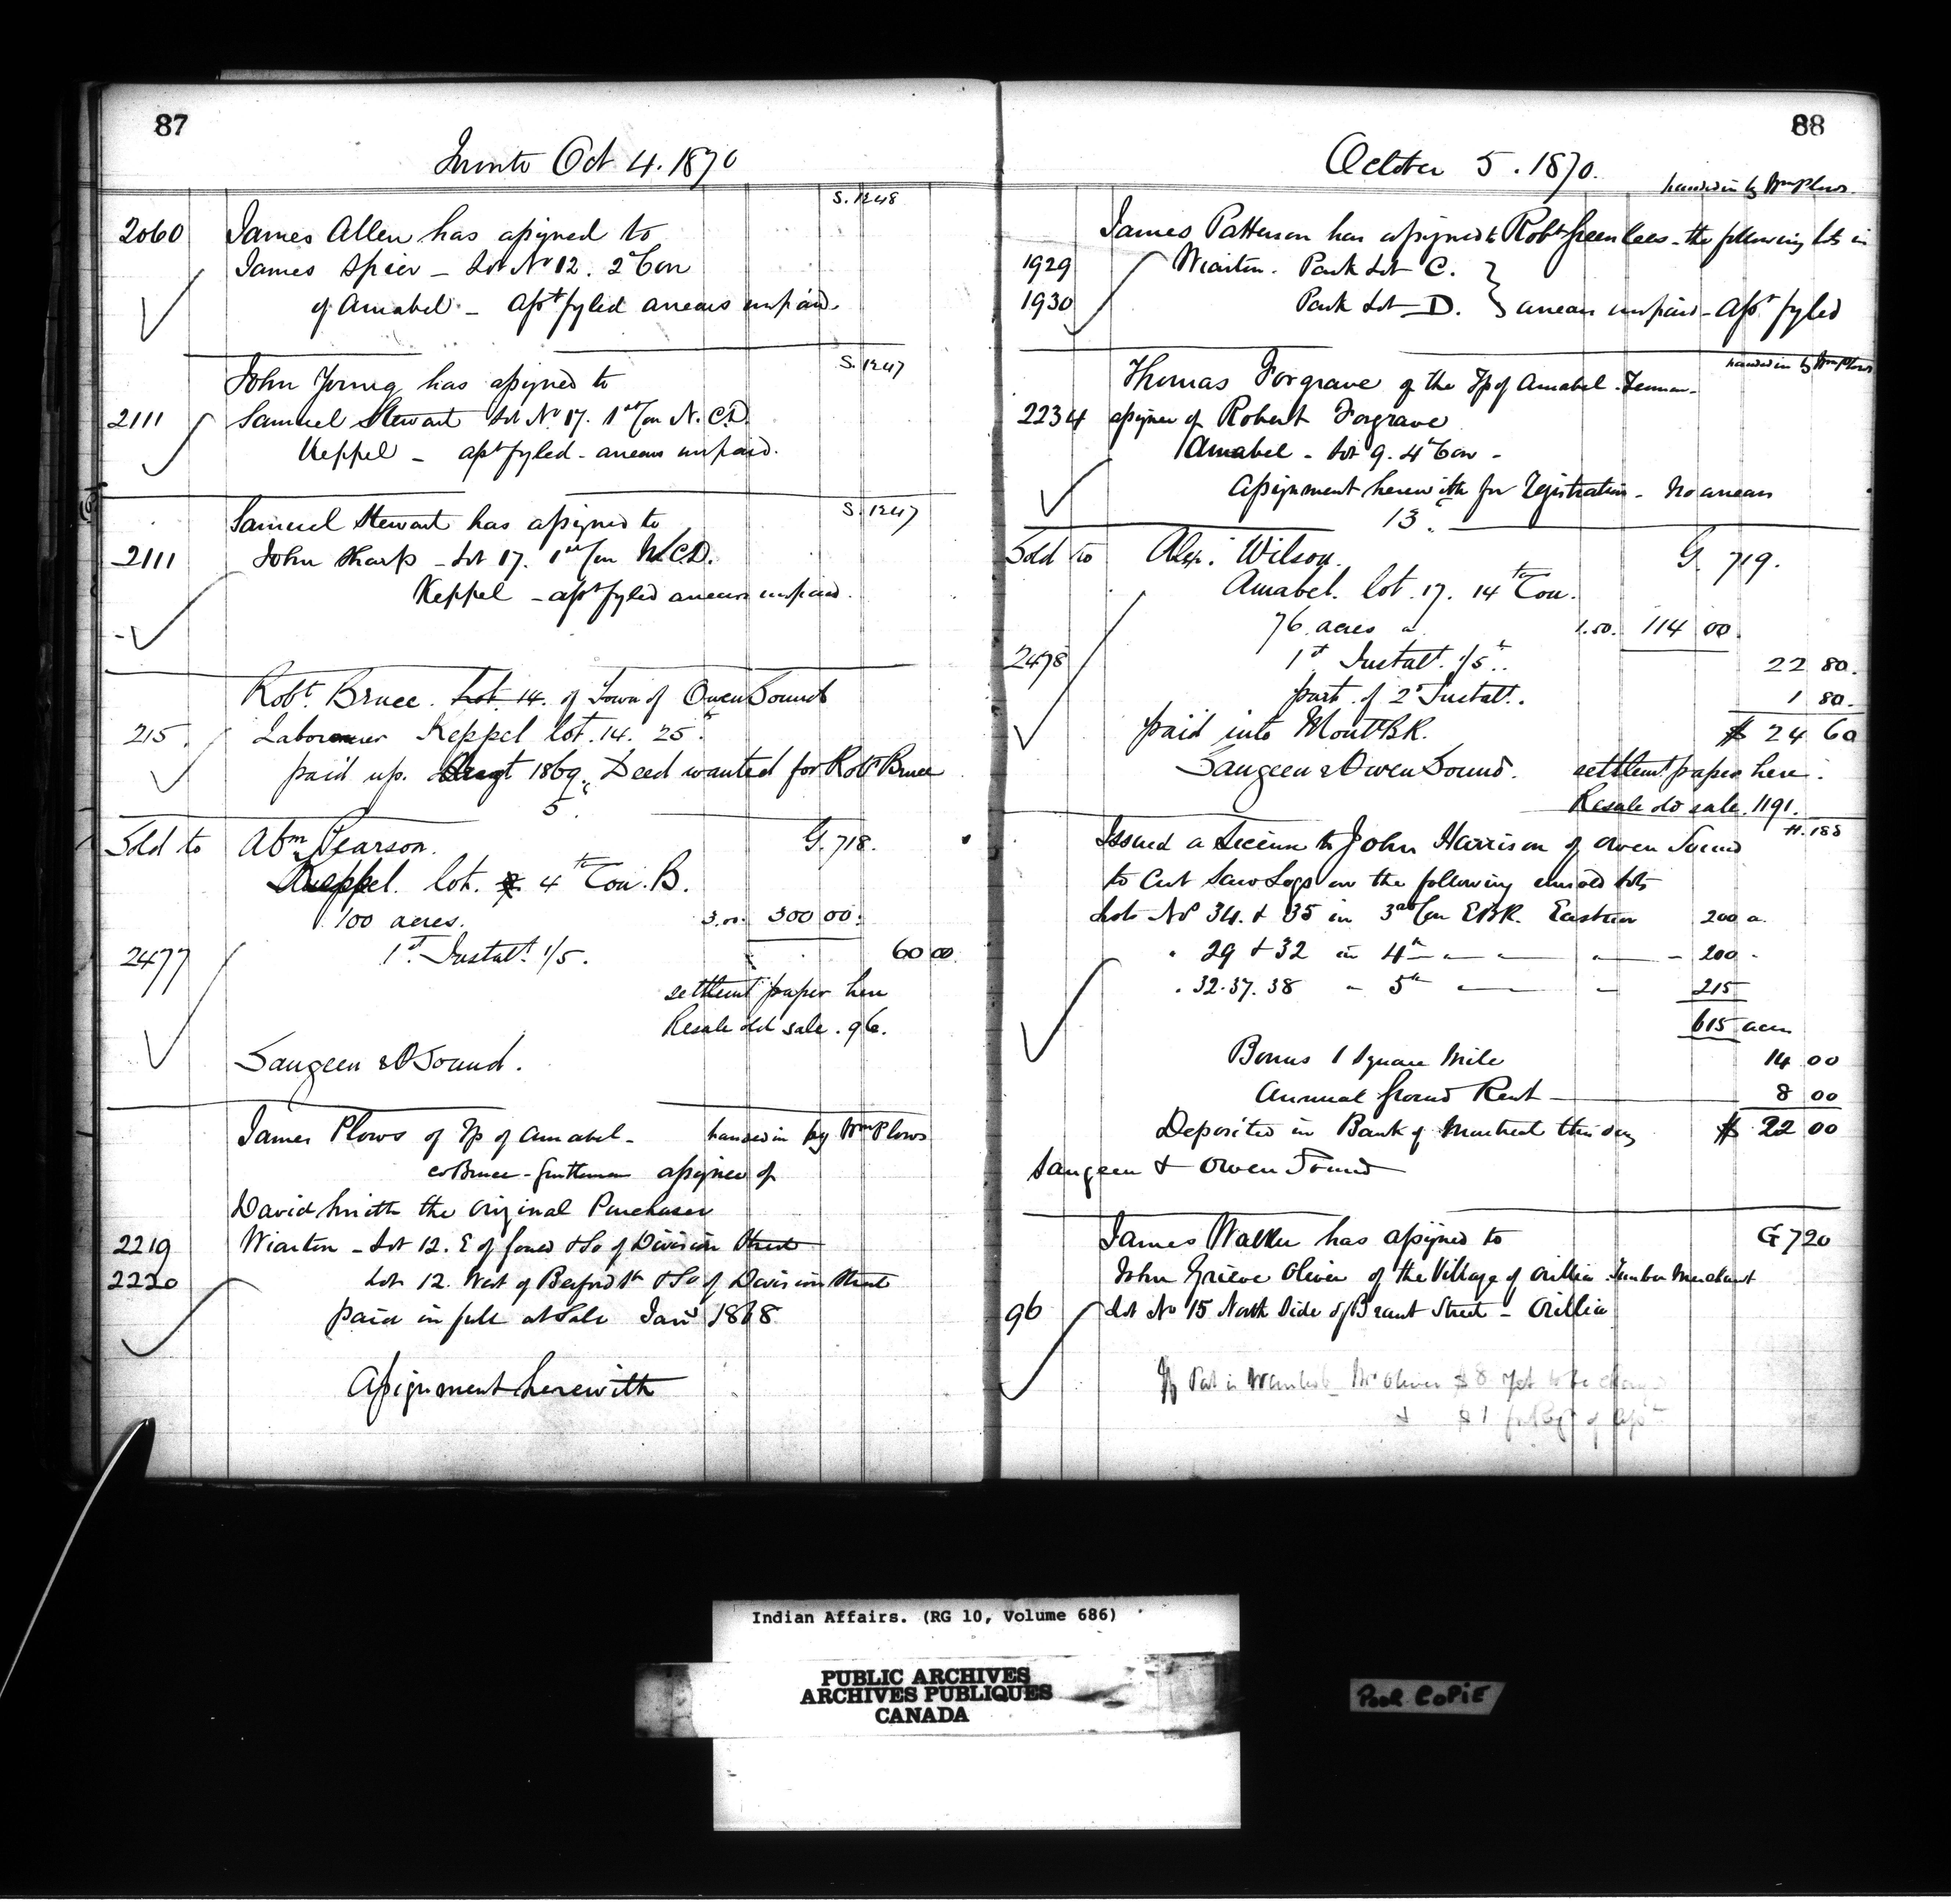 87
Toronto Oct 4. 1870
S. 1248
2060 James Allen has assigned to
James Spier – Lot No 12. 2d Con
of Amabel – asst fyled arrears unpaid.
S. 1247
John Young has assigned to
2111 Samuel Stewart Lot No 17. 1st Con N.C.D.
Keppel – asst fyled – arrears unpaid.
S. 1247
Samuel Stewart has assigned to
2111 John Sharp – Lot 17. 1st Con N.C.D.
Keppel – asst fyled arrears unpaid.
Robt Bruce. Lot. 14. of Town of Owen Sound
215. Labourer Keppel lot. 14. 25th
paid up. Augt 1869. Deed wanted for Robt Bruce
5
Sold to Abm Pearson. G. 718.
Keppel. lot. 4th Con. B.
100 acres. 3.00. 300 00.
2477 1st Instalt 1/5. 60 00.
settlemt paper here
Resale old sale. 96.
Saugeen & O Sound.
James Plows of Tp of Amabel – handed in by Wm Plows
co Bruce – Gentleman assignee of
David Smith the original Purchaser
2219 Wiarton – Lot 12. E of Gould & So of Division Street
2220 Lot 12. West of Berford St & So of Division Street
paid in full at Sale Jany 1868
Assignment herewith
88
October 5. 1870.
handed in by Wm Plows
James Patterson has assigned to Robt Greenlees – the following lots in
1929 Wiarton. Park Lot C.
1930 Park Lot D. arrears unpaid – Asst fyled
handed in by Wm Plows
Thomas Forgrave of the Tp of Amabel
2234 assignee of Robert Forgrave
Amabel – Lot 9. 4th Con –
Assignment herewith for Registration – No arrears
13
Sold to Alexr. Wilson. G. 719.
Amabel. lot. 17. 14th Con.
76 acres " 1.50. 114 00.
2478 1st Instalt. 1/5. 22 80.
part of 2d Instalt. 1 80.
paid into Montl BK. $ 24 60
Saugeen & Owen Sound. settlemt paper here.
Resale old sale. 1191.
H. 188
Issued a License to John Harrison of Owen Sound
to Cut Saw Logs on the following unsold Lots
Lots No 34. & 35 in 3rd Con EBR. Eastnor 200 a.
" 29 & 32 in 4th – " – " – 200 "
" 32. 37. 38 " 5th " – " 215
615 acres
Bonus 1 Square Mile 14 00
Annual Ground Rent 8 00
Deposited in Bank of Montreal this day $ 22 00
Saugeen & Owen Sound
James Walker has assigned to G 720
John Grieve Oliver of the Village of Orillia Lumber Merchant
96 Lot No 15 North Side of Brant Street – Orillia
Mr Oliver $8 yet to be charged
& $1 for Regn of Asst
Indian Affairs. (RG 10, Volume 686)
PUBLIC ARCHIVES
ARCHIVES PUBLIQUES
CANADA
POOR COPIE